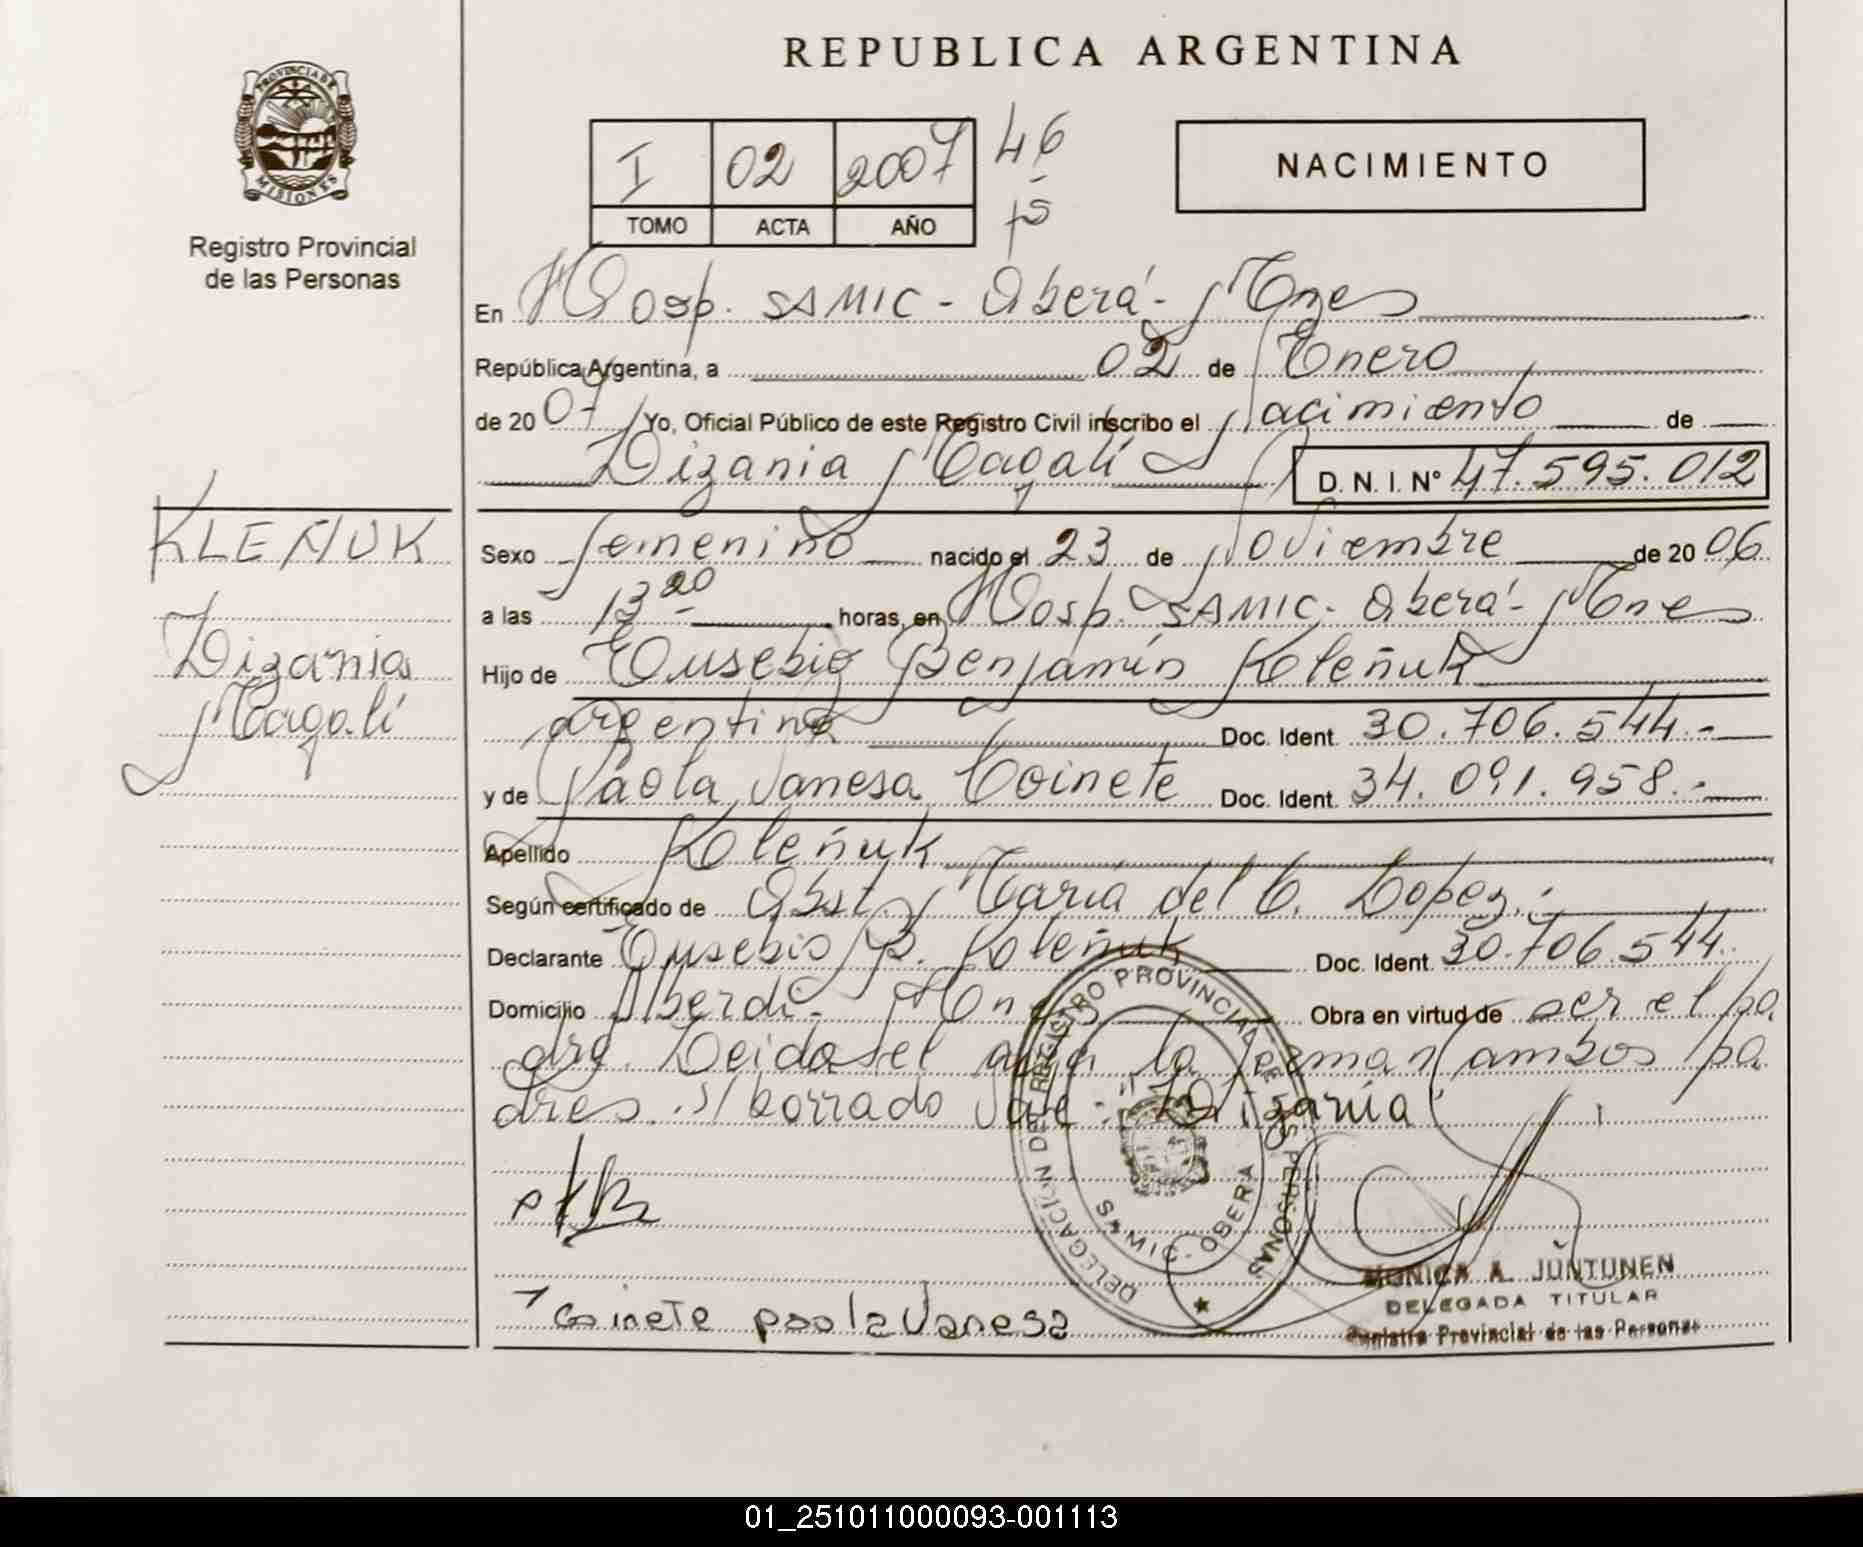 REPUBLICA ARGENTINA
PROVINCIA DE
MISIONES
Registro Provincial
de las Personas
I 02 2007 46
TOMO ACTA AÑO
NACIMIENTO
En Hosp. SAMIC - Oberá - Mnes
República Argentina, a 02 de Enero
de 2007 Yo, Oficial Público de este Registro Civil inscribo el Nacimiento de
Dizania Magalí D. N. I. Nº 47.595.012
KLEÑUK
Dizania
Magalí
Sexo femenino nacido el 23 de Noviembre de 2006
a las 13 20 horas, en Hosp. SAMIC - Oberá - Mnes
Hijo de Eusebio Benjamín Kleñuk
argentino Doc. Ident. 30.706.544.-
y de Paola Vanesa Coinete Doc. Ident. 34.091.958.-
Apellido Kleñuk
Según certificado de Obst. María del C. Lopez.
Declarante Eusebio B. Kleñuk Doc. Ident. 30.706.544.
Domicilio Alberdi - Mnes Obra en virtud de ser el pa
dre. Leida el acta la firman ambos pa
dres. S/ borrado vale: Dizania
DELEGACIÓN DEL REGISTRO PROVINCIAL DE LAS PERSONAS
SAMIC - OBERA
MONICA A. JUNTUNEN
DELEGADA TITULAR
Registro Provincial de las Personas
Coinete paola Vanesa
01_251011000093-001113